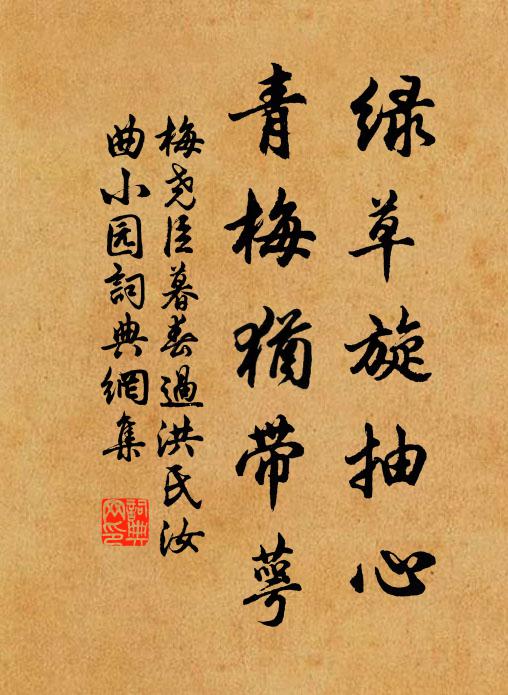 绿草旋抽心
青梅犹带萼
梅尧臣暮春过洪氏汝
曲小园詞典網集
詞典网印